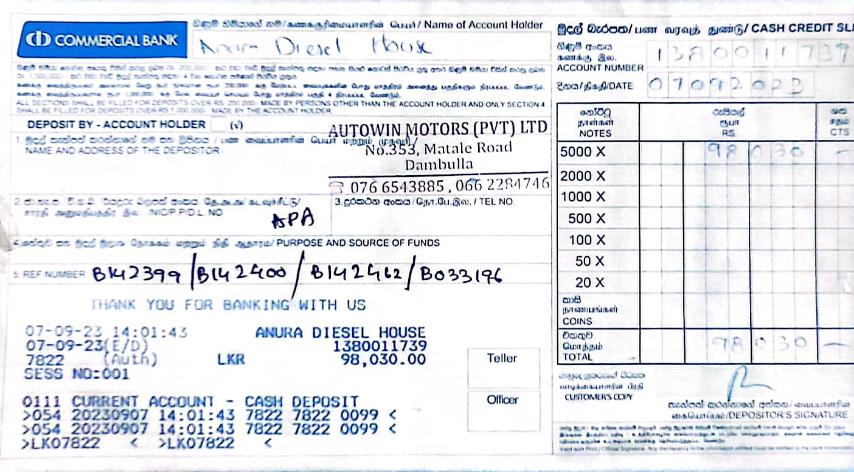 COMMERCIAL BANK
ගිණුම් හිමියාගේ නම / கணக்குரிமையாளரின் பெயர் / Name of Account Holder
Anura Diesel House
ALL SECTIONS SHALL BE FILLED FOR DEPOSITS OVER RS. 200,000/- MADE BY PERSONS OTHER THAN THE ACCOUNT HOLDER AND ONLY SECTION 4
SHALL BE FILLED FOR DEPOSITS OVER RS.1,000,000/- MADE BY THE ACCOUNT HOLDER.
DEPOSIT BY - ACCOUNT HOLDER (√)
NAME AND ADDRESS OF THE DEPOSITOR
AUTOWIN MOTORS (PVT) LTD
No.353, Matale Road
Dambulla
☎ 076 6543885, 066 2284746
NIC/P.P/D.L. NO
APA
3.දුරකථන අංකය/தொ.பே.இல. / TEL NO.
PURPOSE AND SOURCE OF FUNDS
5 REF NUMBER B142399 / B142400 / B142462 / B033196
THANK YOU FOR BANKING WITH US
07-09-23 14:01:43 ANURA DIESEL HOUSE
07-09-23(E/D) 1380011739
7822 (Auth) LKR 98,030.00
SESS NO:001
0111 CURRENT ACCOUNT - CASH DEPOSIT
>054 20230907 14:01:43 7822 7822 0099 <
>054 20230907 14:01:43 7822 7822 0099 <
>LK07822 < >LK07822 <
Teller
Officer
මුදල් බැරපත / பண வரவுத் துண்டு / CASH CREDIT SLI
ගිණුම් අංකය
கணக்கு இல.
ACCOUNT NUMBER 1380011739
දිනය/திகதி/DATE 07092023
නෝට්ටු රුපියල් ශත
நாள்கள் ரூபா சதம்
NOTES RS. CTS
5000 X 98030 -
2000 X
1000 X
500 X
100 X
50 X
20 X
කාසි
நாணயங்கள்
COINS
එකතුව
மொத்தம்
TOTAL 98030 -
CUSTOMER'S COPY
கையொப்பம்/DEPOSITOR'S SIGNATURE